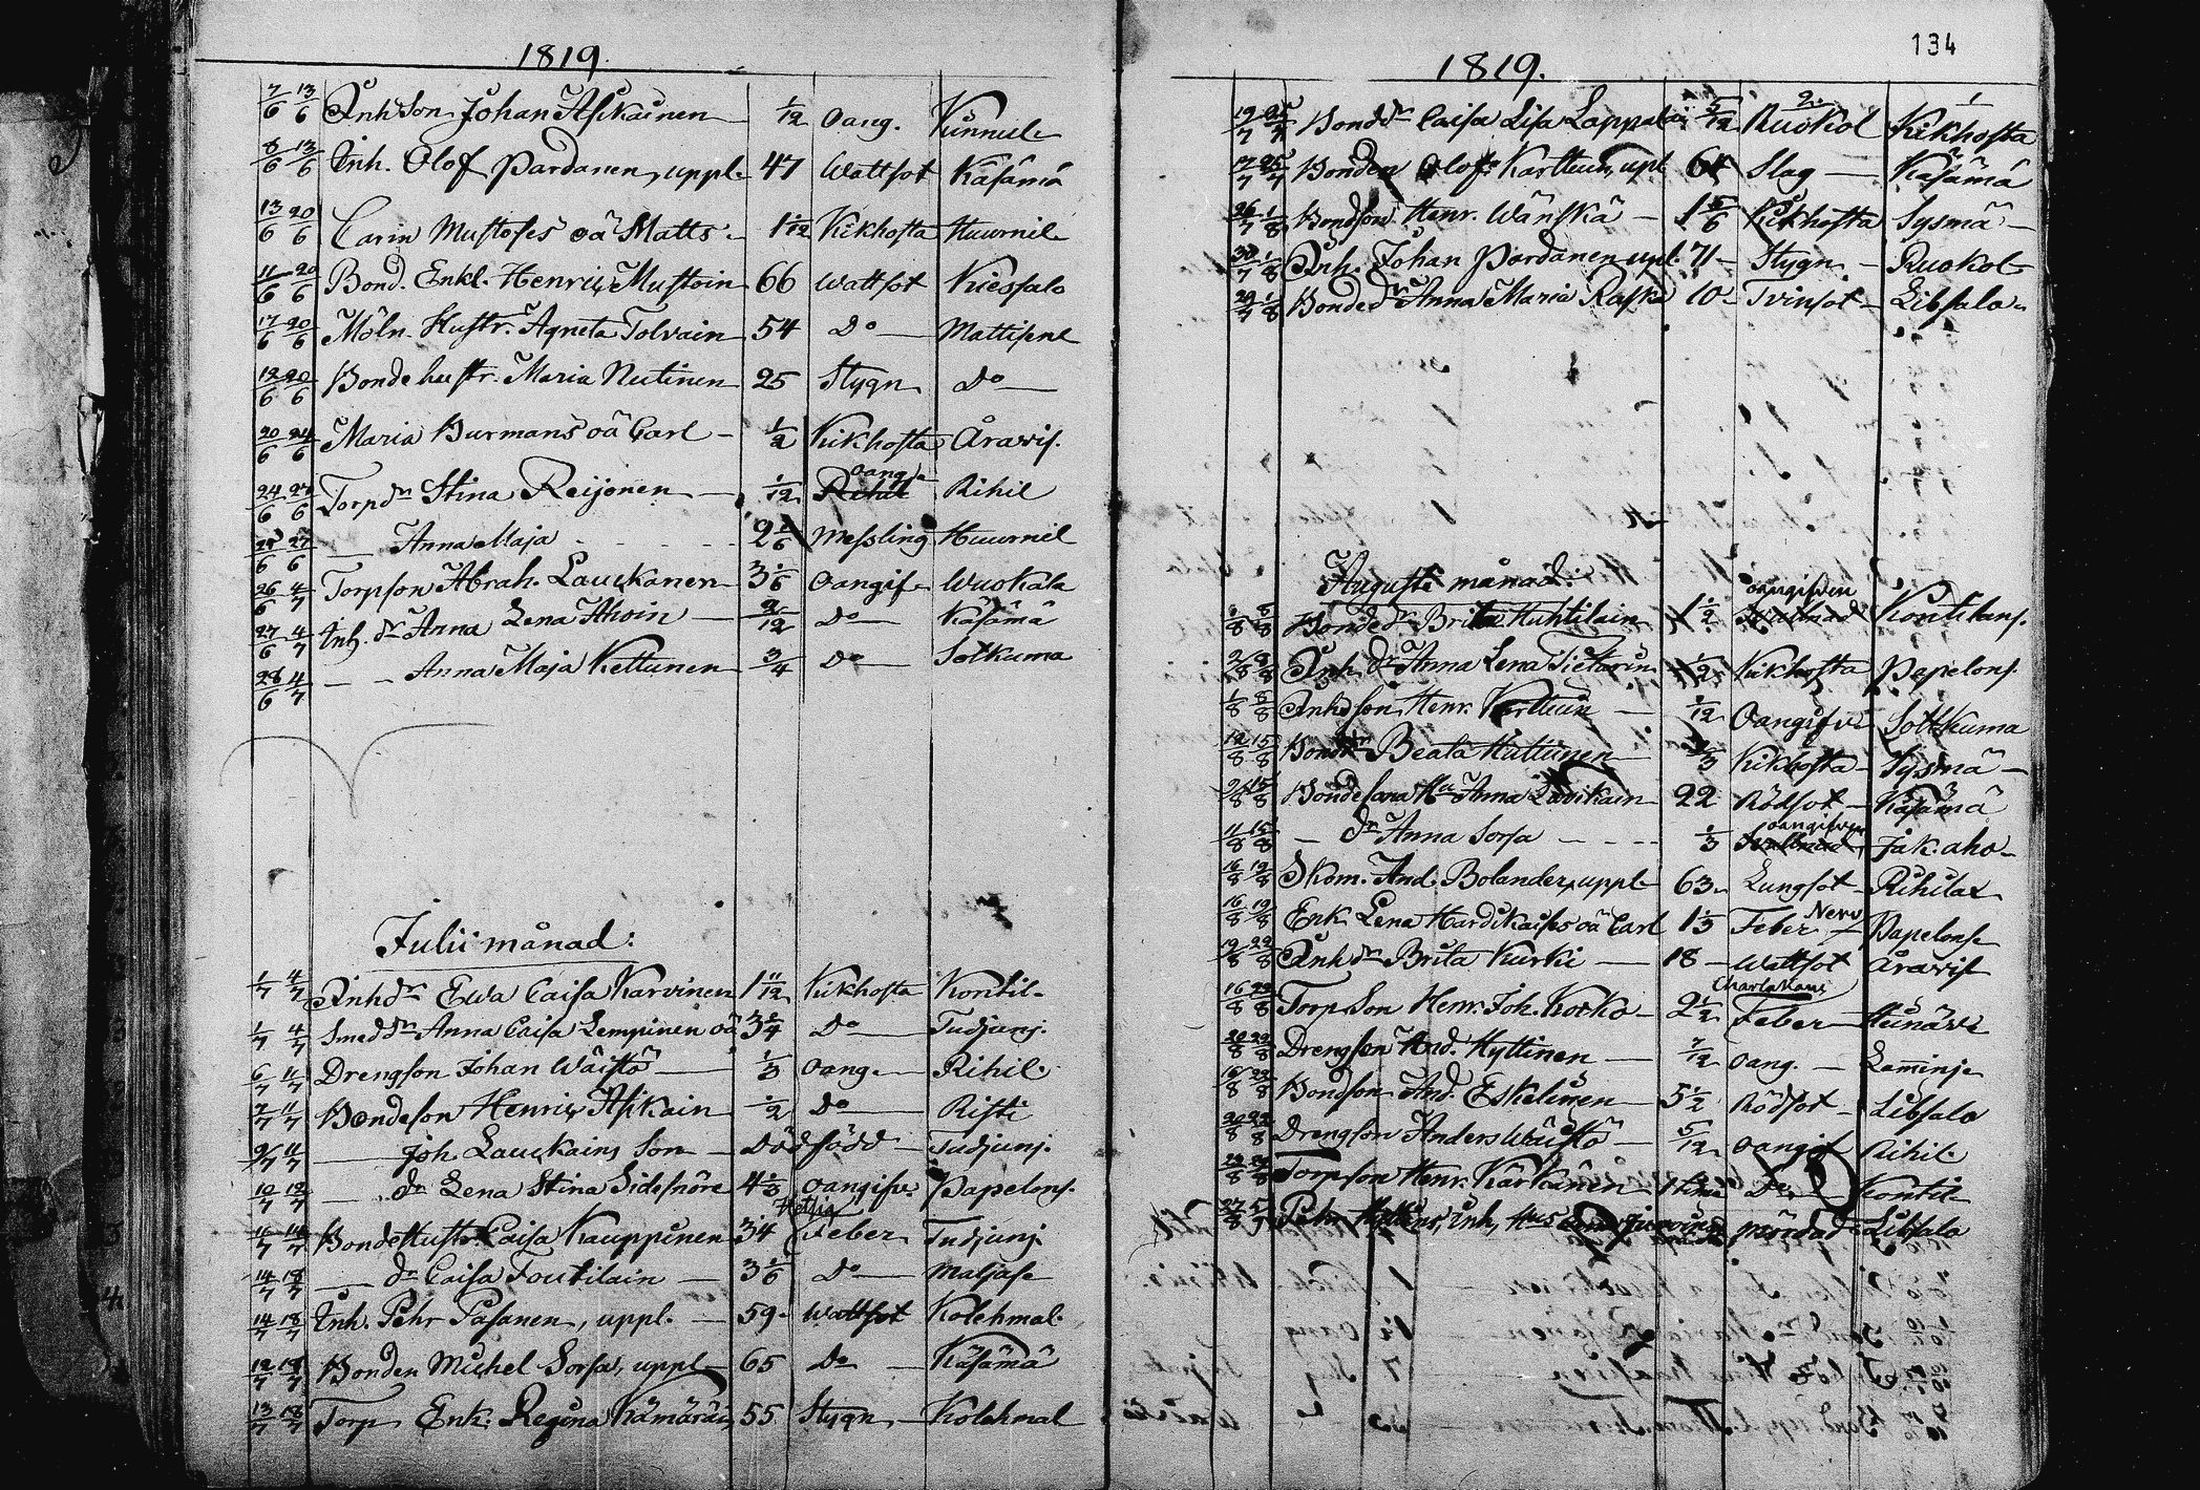 1819.
7/6 13/6 Inh Son Johan Asikainen 1/12 Oang. Kinnul.
8/6 13/6 Inh. Olof Pardanen, uppl. 47 Wattsot Käsämä
13/6 20/6 Carin Mustoses oä Matts. 1 1/12 Kikhosta Huurnil.
11/6 20/6 Bond. Enkl. Henric Mustoin 66 Wattsot Kiessalo
17/6 20/6 Möln. Hustr. Agneta Tolvain 54 Do Mattisenl
12/6 20/6 Bonde hustr. Maria Nutinen 25 Stygn Do
20/6 24/6 Maria Burmans oä Carl 1/2 Kikhosta Årawis.
24/6 27/6 Torp dr Stina Reijonen 1/12 Oang. Rihil
27/6 Anna Maja 2 1/6 Messling Huurnil
26/6 4/7 Torpson Abrah. Lauckanen 3 1/6 Oangif. Wuokala
27/6 4/7 Inh. dr Anna Lena Ahoin 2/12 Do Käsämä
28/6 4/7 Anna Maja Kettunen 3/4 Do Sotkuma
Julii månad:
1/7 4/7 Inh dr Ewa Caisa Karvinen 1 11/12 Kikhosta Kontil.
1/7 4/7 Smed dr Anna Caisa Lempinen oä 3 1/4 Do Tudjunj.
6/7 11/7 Drengson Johan Wäistö 1/3 Oang. Rihil.
7/7 11/7 Bondeson Henric Asikain 1/2 Do Risti
9/7 11/7 Joh. Lauckains Son Död född Tudjunj.
10/7 12/7 dr Lena Stina Sidesnöre 4 1/3 Oangifv. Papelons.
11/7 Bonde Hustr. Caisa Kauppinen 34 Hetsig Feber Tudjunj
14/7 18/7 dr Caisa Toutilain 3 1/6 Do Maljase
14/7 18/7 Inh. Pehr Pasanen, uppl. 59 Wattsot Kolehmal.
12/7 18/7 Bonden Michel Sorsa, uppl. 65 Do Käsämä
13/7 18/7 Torp Enk. Regina Kämäräin 55 Stygn Kolehmal
134
1819.
19/7 25/7 Bond dr Caisa Lisa Lappalai 5/12 Ruokol Kikhosta
17/7 25/7 Bonden Olof Karttun, upl Slag Käsämä
26/7 1/8 Bondson Henr. Wänskä 1 5/6 Kikhosta Sysmä
30/7 1/8 Inh. Johan Pardanen upl. 71 Stygn Ruokol
29/7 1/8 Bonde dr Anna Maria Raska 10 Tvinsot Libsalo
Augusti månad:
8/8 Bonde dr Brita Huhtilain 1 1/2 oangifven Kontilans.
2/8 8/8 Inh dr Anna Lena Tietäväin 1/2 Kikhosta Papelons.
1/8 8/8 Inh son Henr. Karttuin 1/12 Oangifv. Sottkuma
12/8 15/8 Bond dr Beata Huttunen Kikhosta Sysmä
9/8 15/8 Bondesona Hu Anna Lavikain 22 Rödsot Käsämä
11/8 15/8 dr Anna Sorsa 1/3 oangifven Jakaho
16/8 19/8 Skom. And. Bolander, uppl. 63 Lungsot Rihilax
16/8 19/8 Enk Lena Hardikaises oä Carl 1 1/3 Nerv Feber Papelons
19/8 22/8 Inh dr Brita Kurki 18 Wattsot Årawis
16/8 22/8 Torp Son Henr. Joh. Korko 2 1/2 Charlakans Feber Heinäve
20/8 22/8 Drengson And. Hyttinen 7/12 Oang. Leminje
16/8 22/8 Bondson And. Eskelinen 5 1/2 Rödsot Libsalo
20/8 22/8 Drengson Anders Wäistö 5/12 Oangif Rihil.
Torpson Henr. Kärkänen 1 tima Do Kontil
27/8 5/9 Pehr Hyttins, Inh, Hus mördad Libsalo